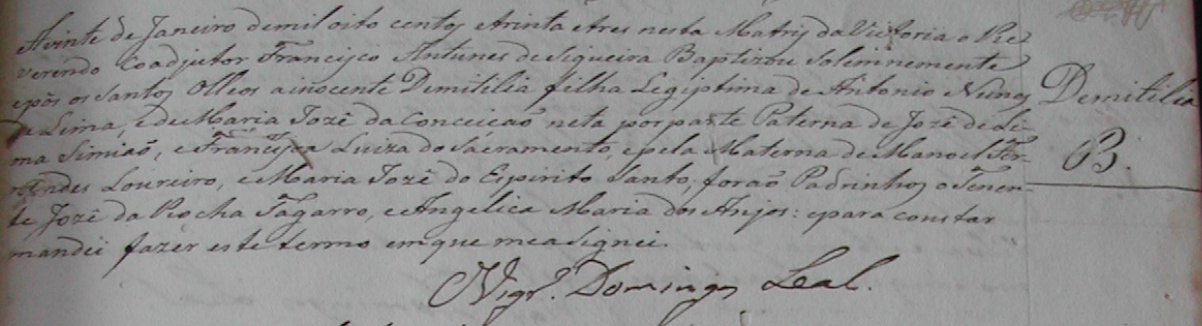 Avinte de Janeiro demil oito centos etrinta etres nesta Matriz da Victoria o Re
verendo Coadjutor Francisco Antunes de Siqueira Baptizou Solemnemente
epôs os Santos Olleos ainocente Demitilia filha Legiptima de Antonio Nunes
de Lima, e de Maria Jozê da Conceicaõ neta por parte Paterna de Jozê de Li-
ma Simiaõ, e Francisca Luiza do Sacramento, e pela Materna de Manoel Fer-
nandes Loureiro, e Maria Jozê do Espirito Santo; foraõ Padrinhos o Tenen-
te Jozê da Rocha Tagarro, e Angelica Maria dos Anjos: epara constar
mandei fazer este termo emque measignei.
Vigr.º Domingos Leal.
Demitilia
B.